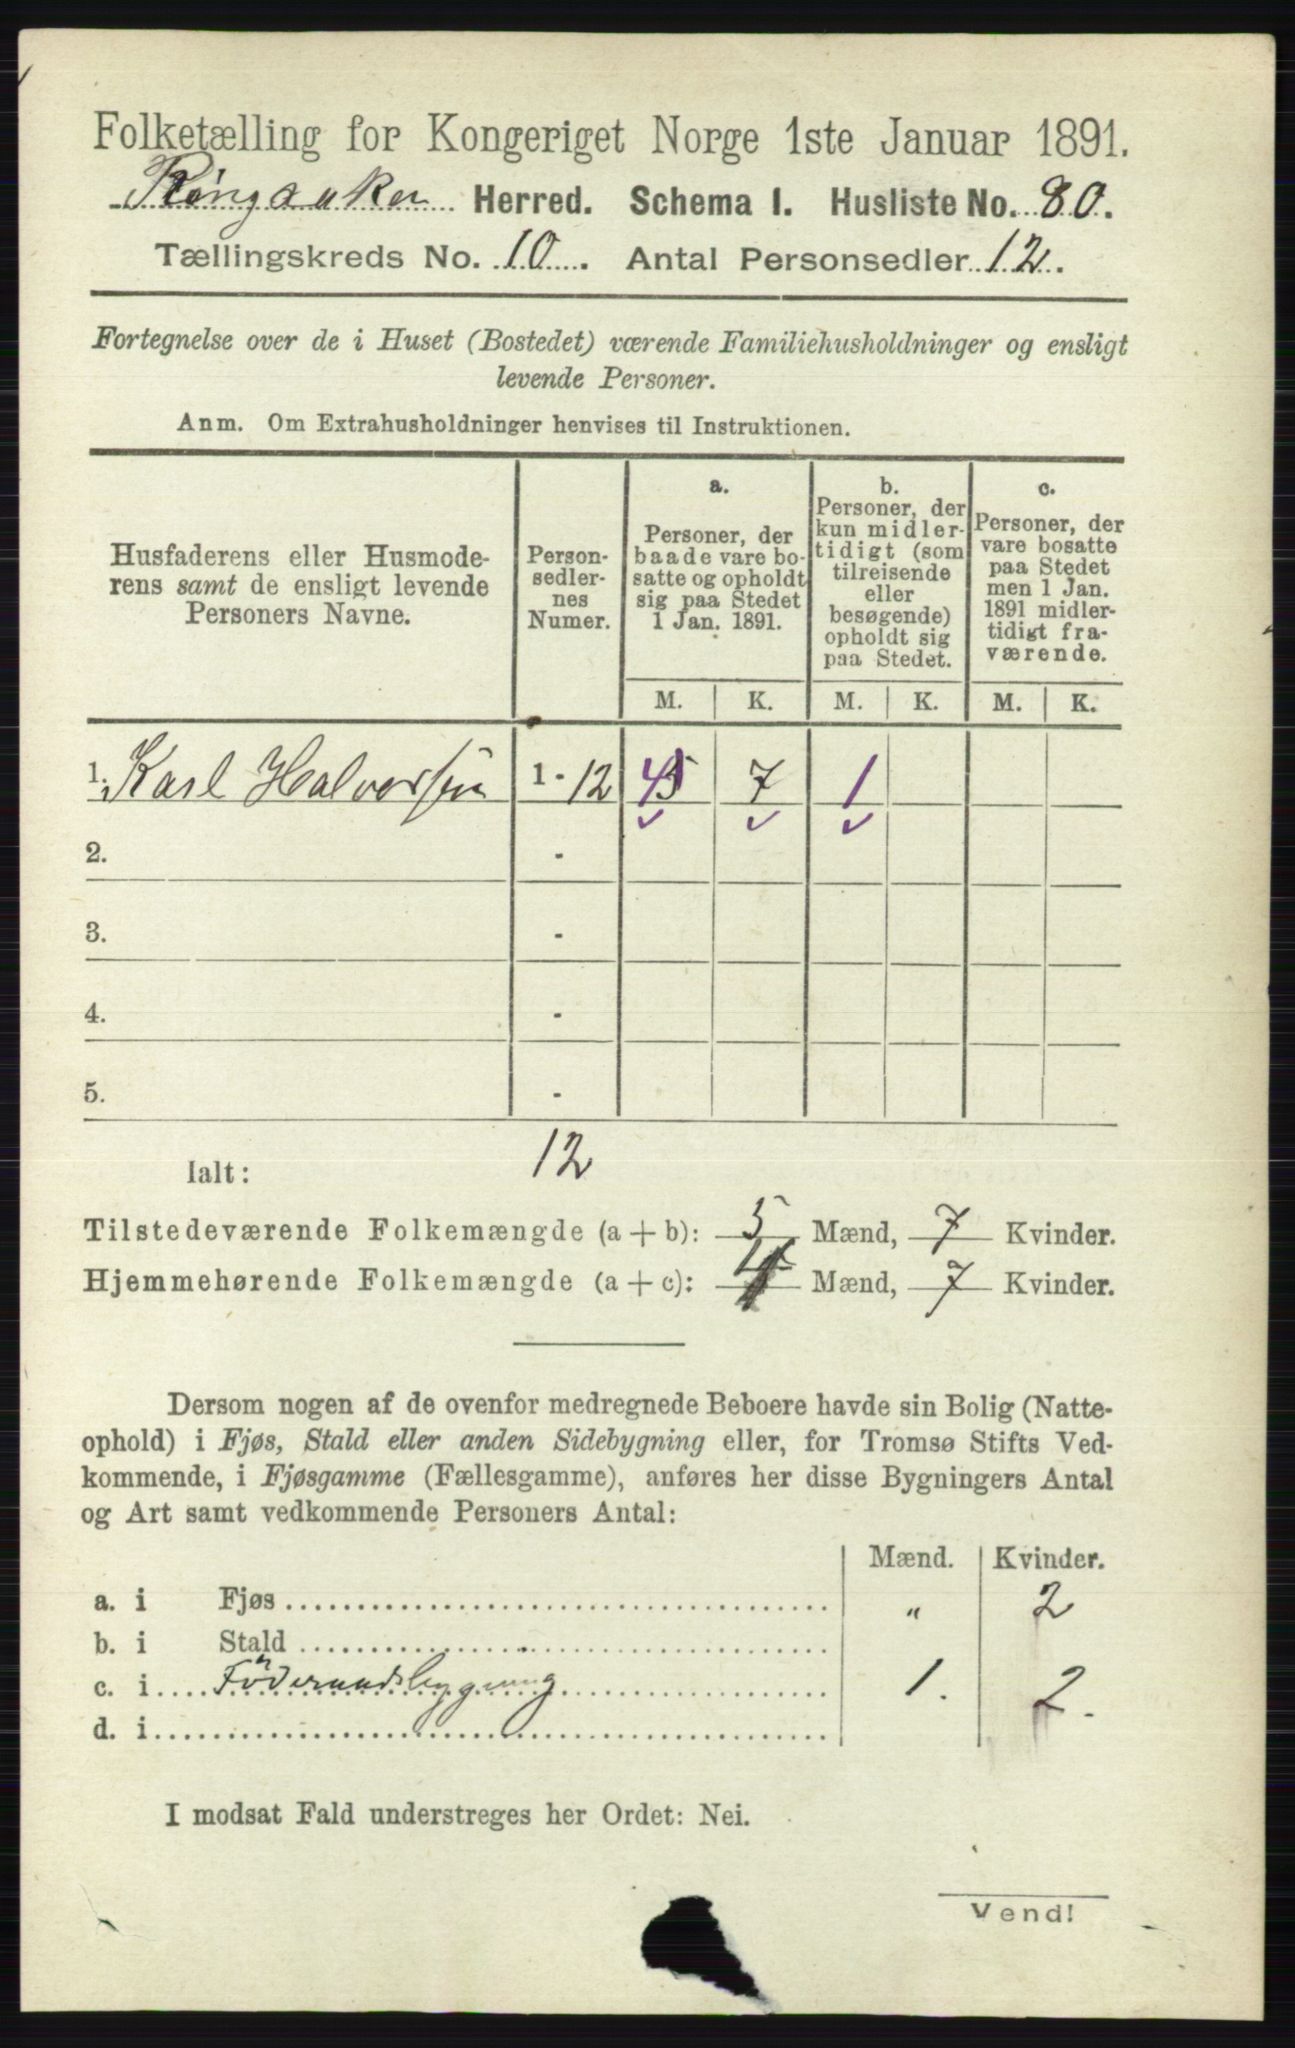 Folketælling for Kongeriget Norge 1ste Januar 1891.
Ringsaker Herred. Schema I. Husliste No. 80.
Tællingskreds No. 10. Antal Personsedler 12.
Fortegnelse over de i Huset (Bostedet) værende Familiehusholdninger og ensligt
levende Personer.
Anm. Om Extrahusholdninger henvises til Instruktionen.
Husfaderens eller Husmode-
rens samt de ensligt levende
Personers Navne.
Person-
sedler-
nes
Numer.
a.
Personer, der
baade vare bo-
satte og opholdt
sig paa Stedet
1 Jan. 1891.
b.
Personer, der
kun midler-
tidigt (som
tilreisende
eller
besøgende)
opholdt sig
paa Stedet.
c.
Personer, der
vare bosatte
paa Stedet
men 1 Jan.
1891 midler-
tidigt fra-
værende.
M. K. M. K. M. K.
1. Karl Halversen 1 - 12 4 7 1
2. -
3. -
4. -
5. -
12
Ialt:
Tilstedeværende Folkemængde (a + b): 5 Mænd, 7 Kvinder.
Hjemmehørende Folkemængde (a + c): 4 Mænd, 7 Kvinder.
Dersom nogen af de ovenfor medregnede Beboere havde sin Bolig (Natte-
ophold) i Fjøs, Stald eller anden Sidebygning eller, for Tromsø Stifts Ved-
kommende, i Fjøsgamme (Fællesgamme), anføres her disse Bygningers Antal
og Art samt vedkommende Personers Antal:
Mænd. Kvinder.
a. i Fjøs „ 2
b. i Stald
c. i Föderaadsbygning 1. 2.
d. i
I modsat Fald understreges her Ordet: Nei.
Vend!